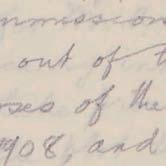 mmission
out of t
oses of the
1908, and